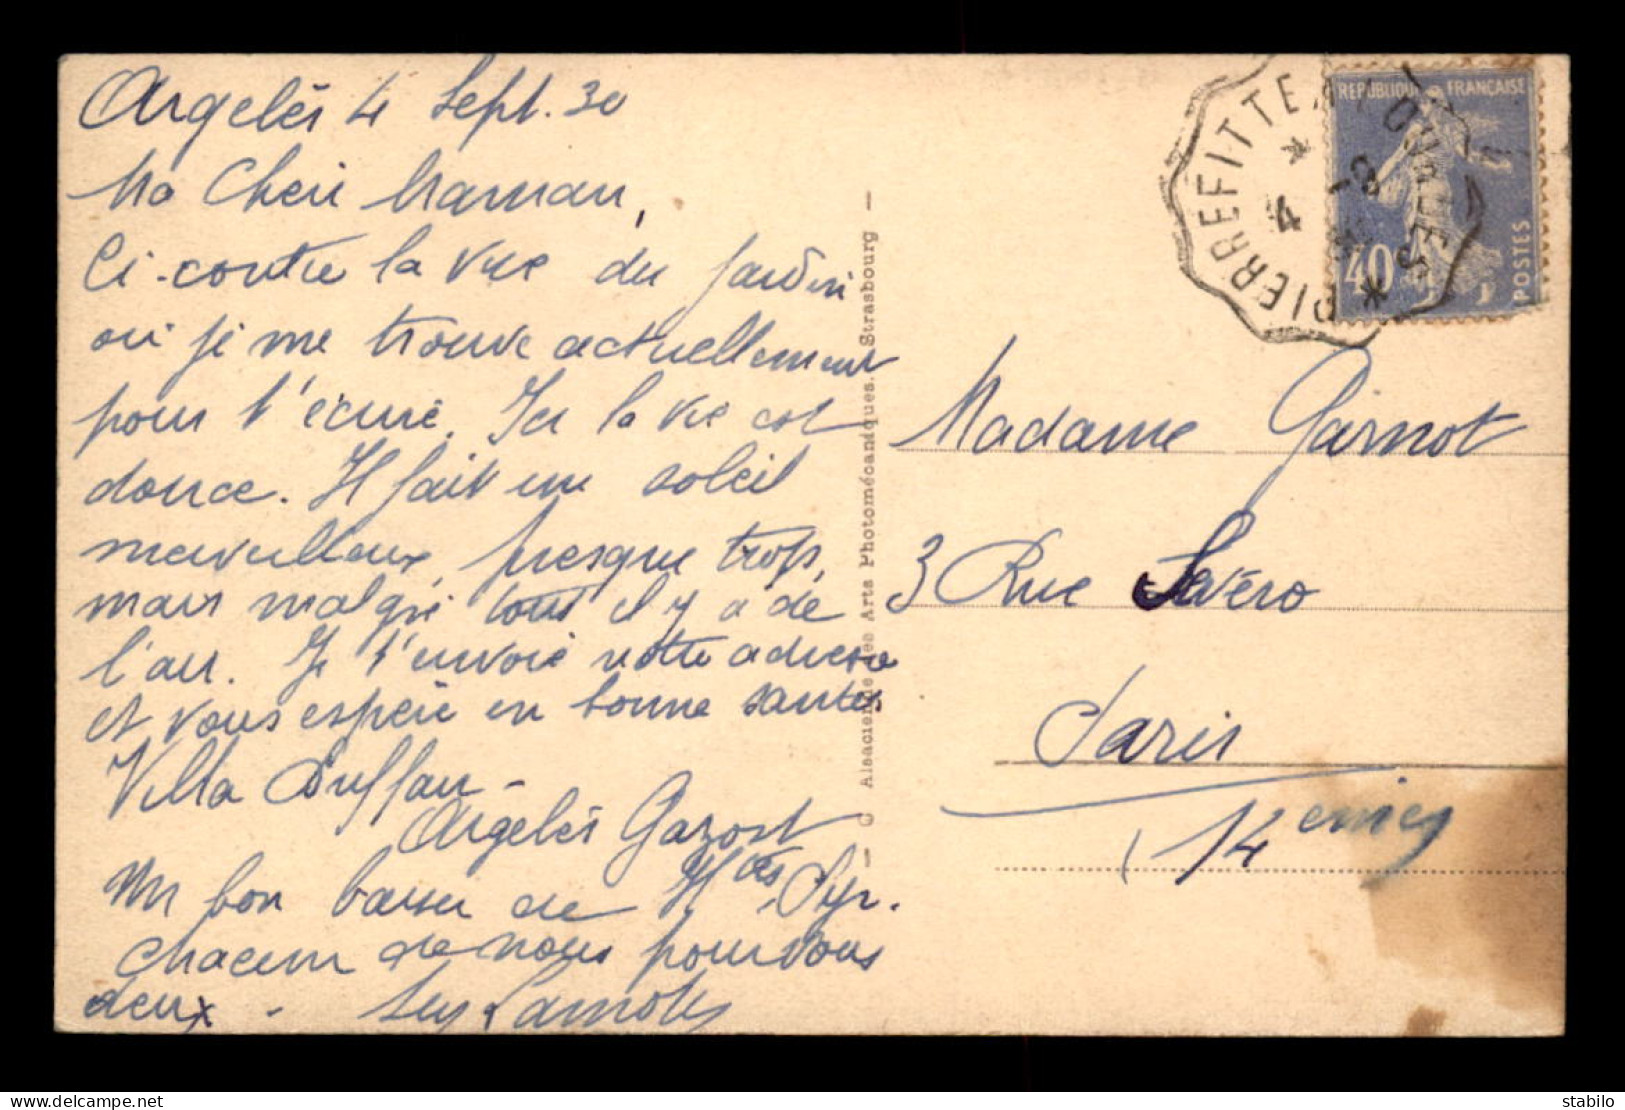 Argelès 4 Sept. 30
Ma Cheri Maman,
Ci-contre la vue du jardin
où je me trouve actuellement
pour t'écrire. Ici la vie est
douce. Il fait un soleil
merveilleux, presque trop,
mais malgré tout il y a de
l'air. Je t'envoie notre adresse
et vous espère en bonne santés
Villa Duffau -
Argelès Gazost
Un bon baiser de Htes Pyr.
chacun de nous pour vous
deux -
C Alsacienne des Arts Photomécaniques. Strasbourg
PIERREFITTE A LOURDES
4
REPUBLIQUE FRANÇAISE
40
POSTES
Madame Garnot
3 Rue Sévéro
Paris
14
stabilo
delcampe.net